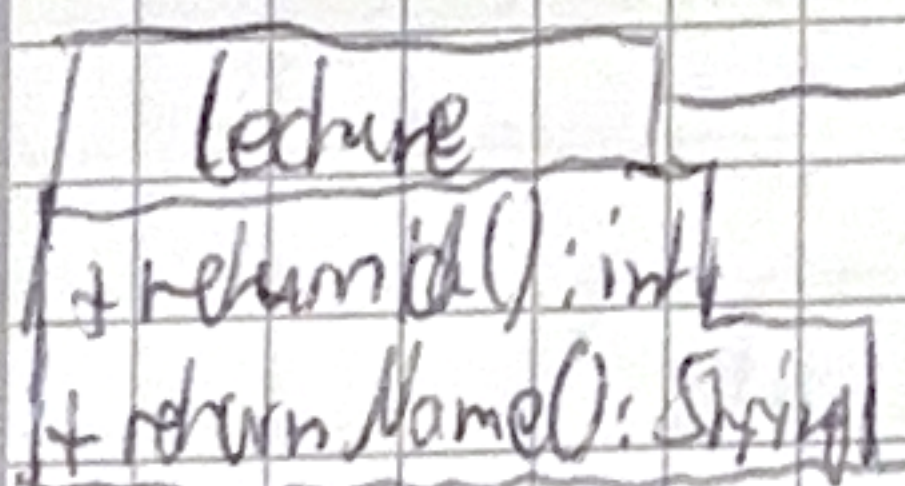 Lecture
+ returnId() : int
+ returnName() : String